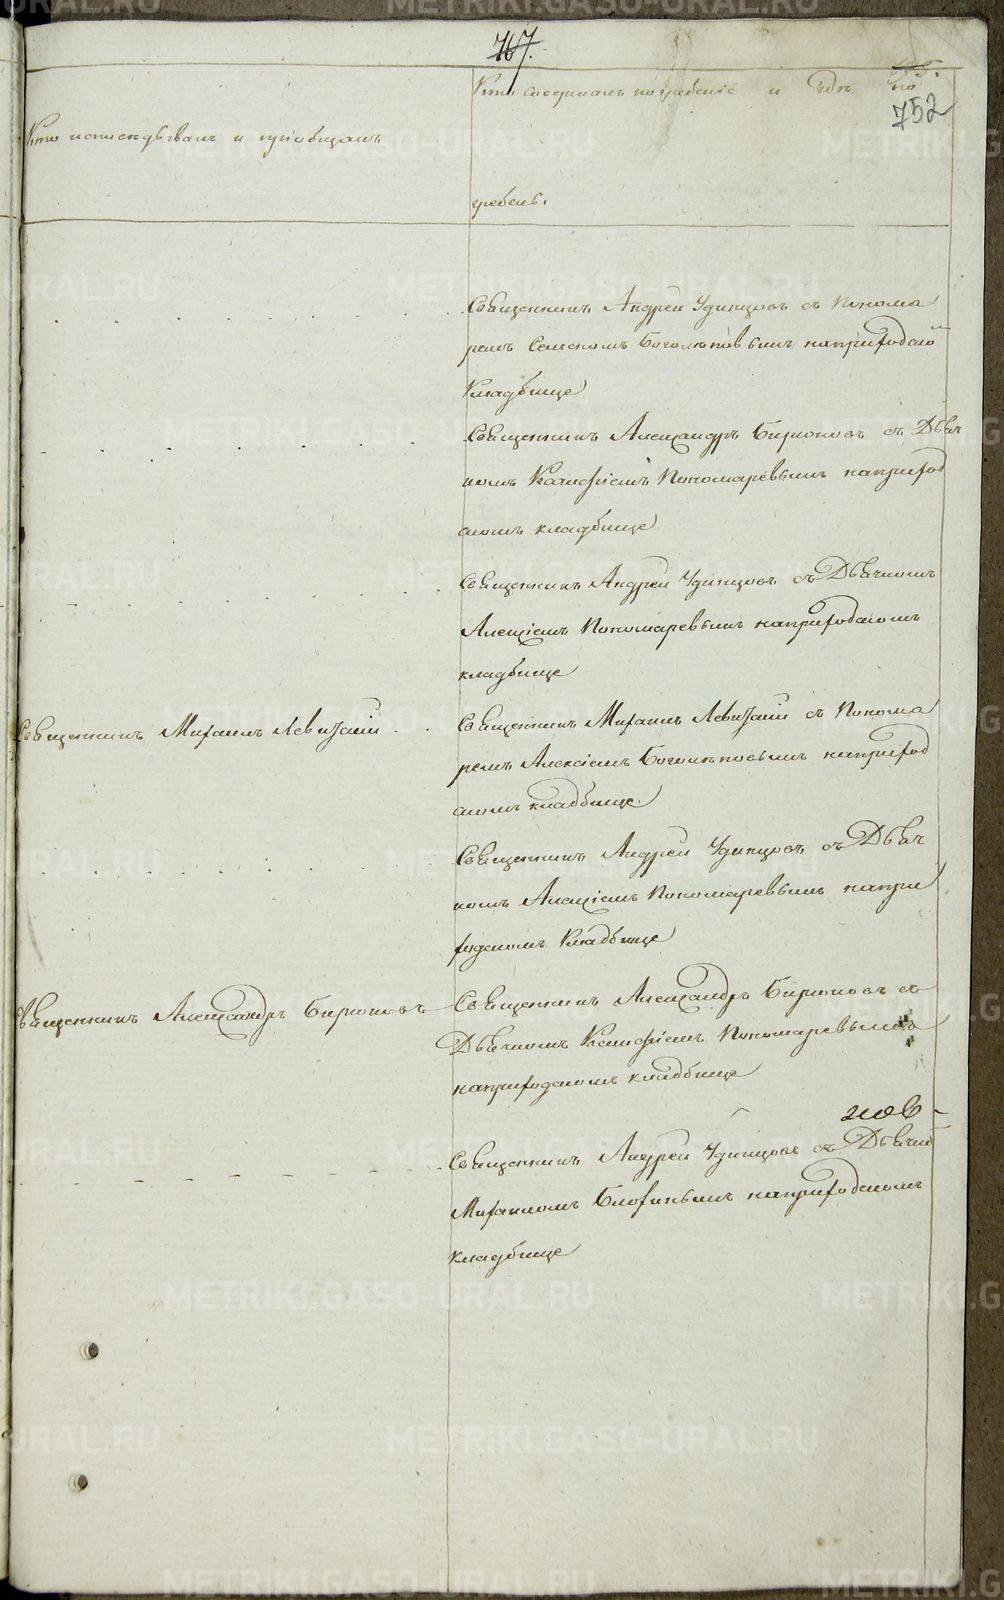 767.
752
Кто исповѣдывалъ и пріобщалъ
Кто совершалъ погребеніе и гдѣ по
гребенъ.
Священникъ Андрей Удинцовъ съ Понома
ремъ Семеномъ Боголѣповымъ наприходско
Кладбище
Священникъ Александръ Бирюковъ съ Дьяч
комъ Пономаревымъ наприход
скомъ кладбище
Священникъ Андрей Удинцовъ съ Дьячкомъ
Алексіемъ Пономаревымъ наприходскомъ
кладбище
Священникъ Михаилъ Левицкій
Священникъ Михаилъ Левицкій съ Понома
ремъ Алексіемъ Боголѣповымъ наприход
скомъ кладбище
Священникъ Андрей Удинцовъ съ Дьяч
комъ Алексіемъ Пономаревымъ напри
ходскомъ Кладбище
Священникъ Александръ Бирюковъ
Священникъ Александръ Бирюковъ съ
Дьячкомъ Пономаревымъ
наприходскомъ кладбище
Священникъ Андрей Удинцовъ съ Дьячко
Михаиломъ наприходскомъ
кладбище
METRIKI.GASO-URAL.RU